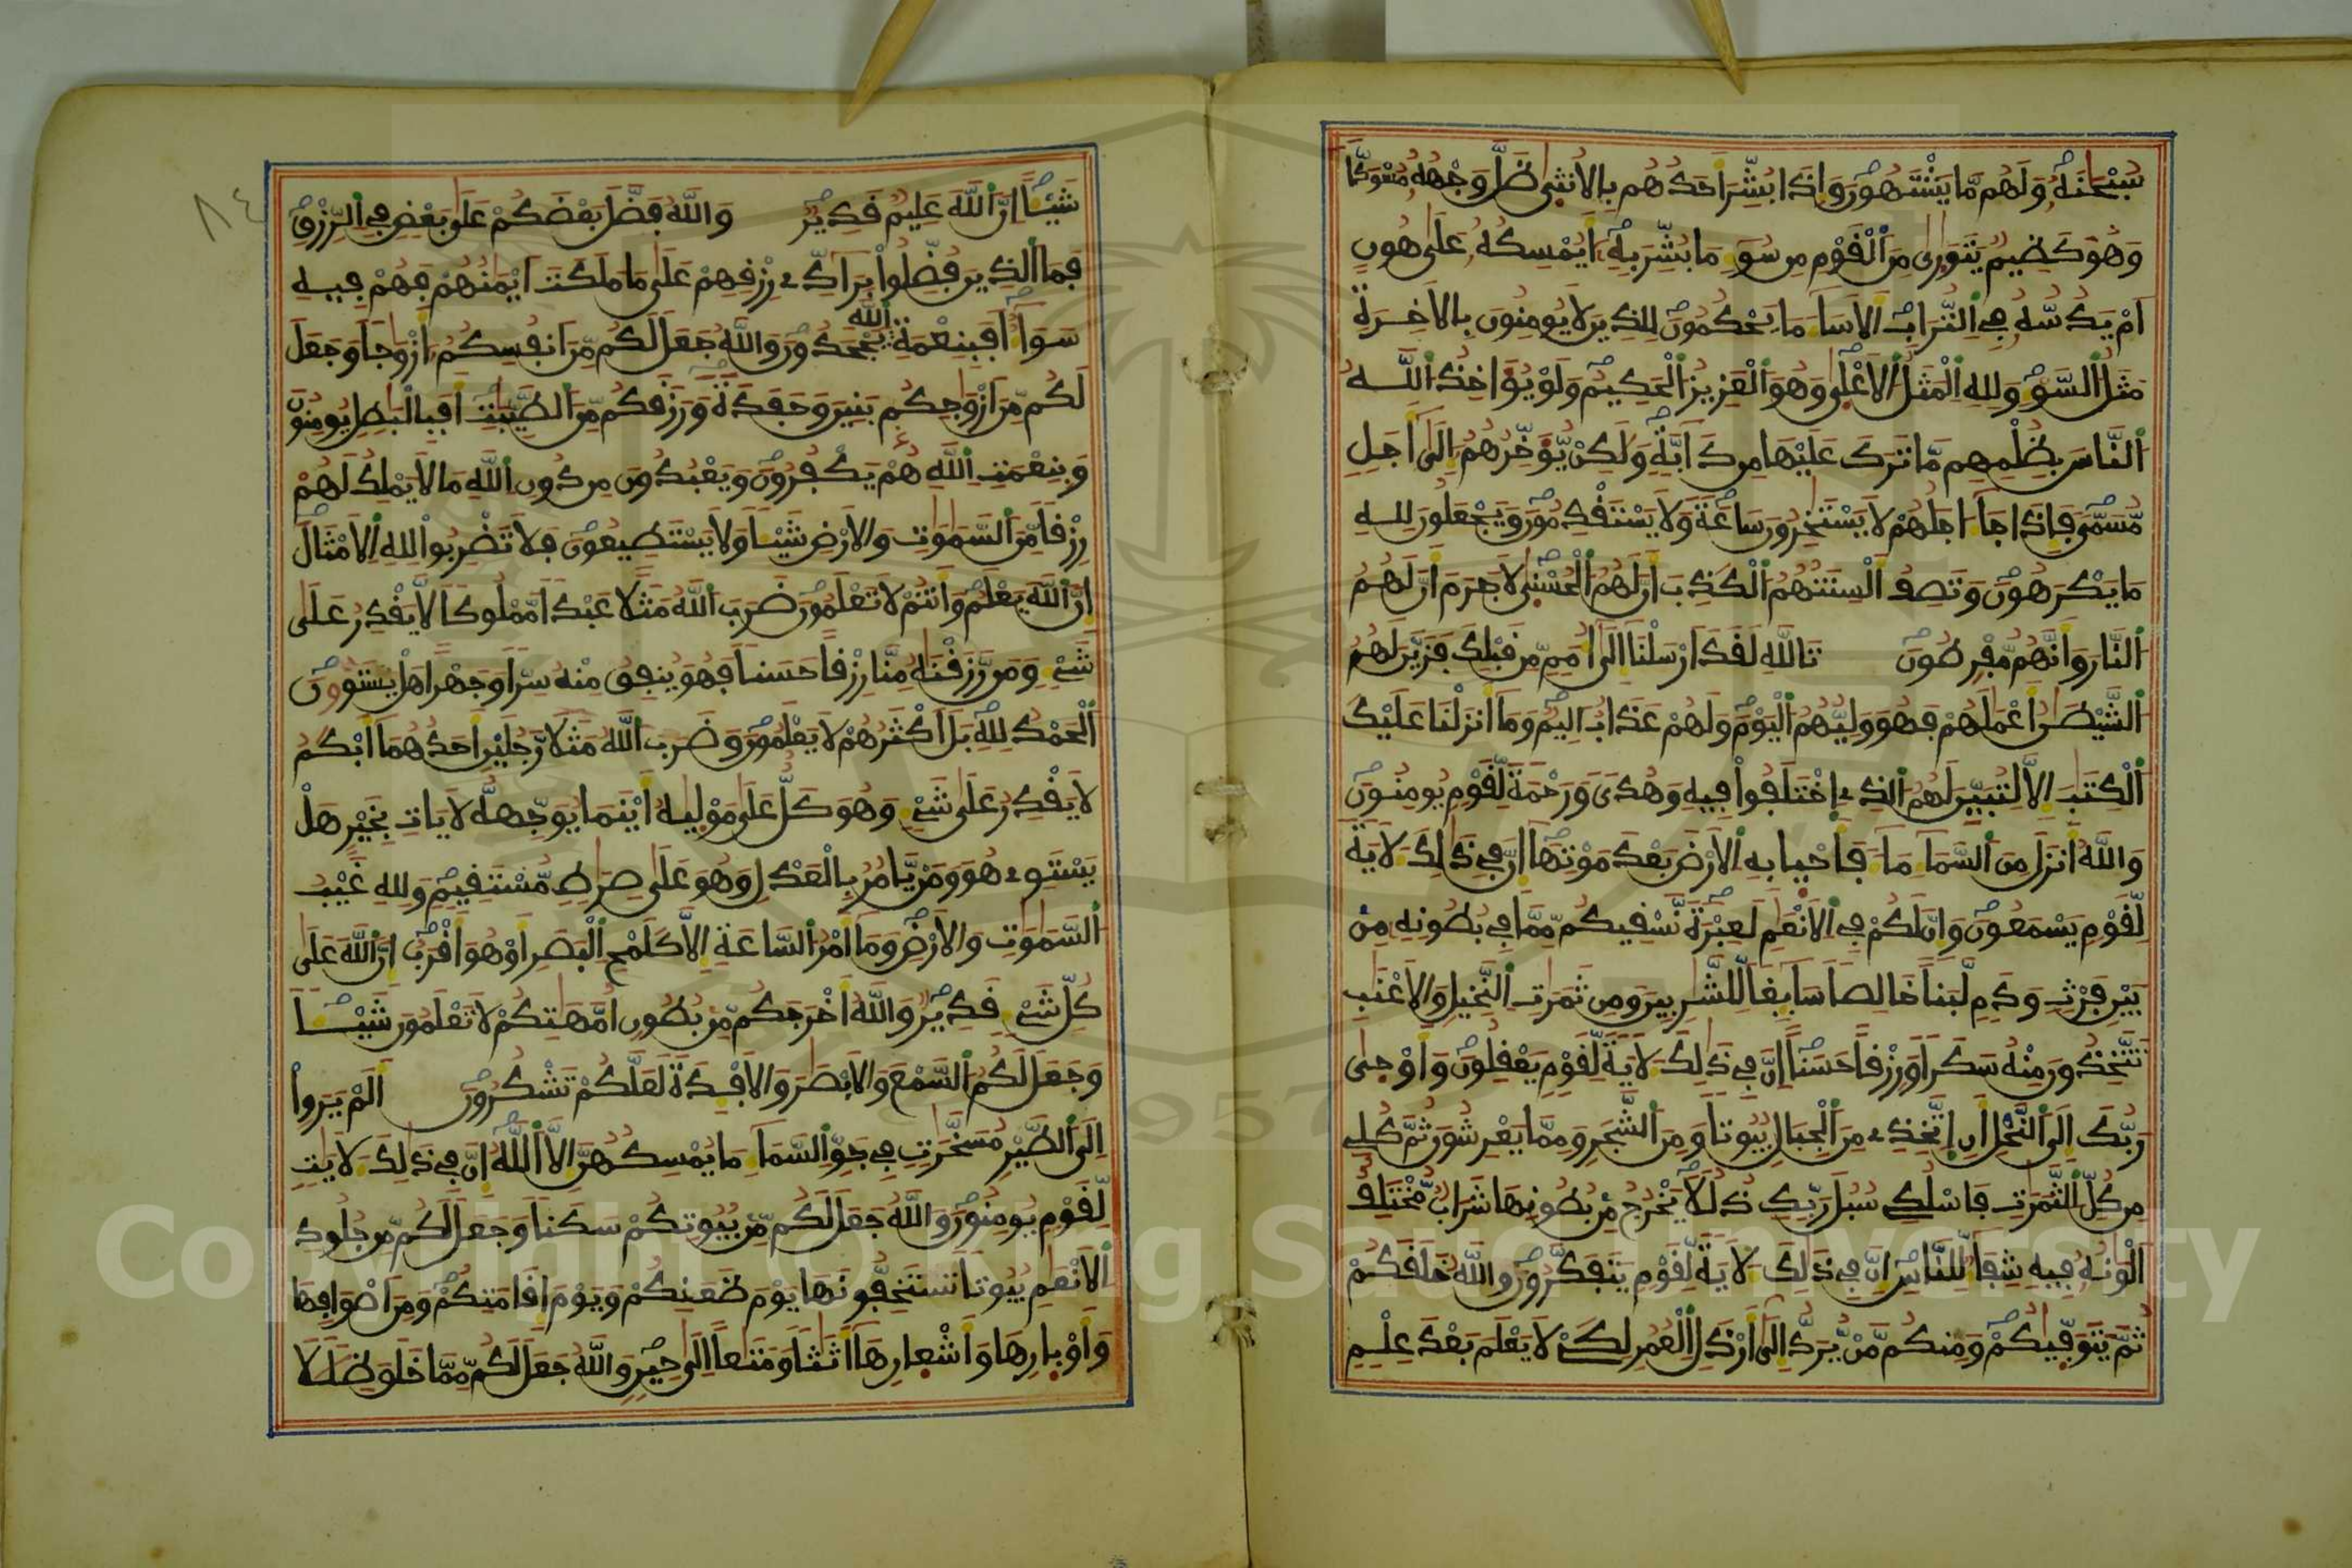 سُبْحَٰنَهُۥ وَلَهُم مَّا يَشْتَهُونَ وَإِذَا بُشِّرَ أَحَدُهُم بِالْأُنثَىٰ ظَلَّ وَجْهُهُۥ مُسْوَدّٗا
وَهُوَ كَظِيمٌ يَتَوَٰرَىٰ مِنَ ٱلْقَوْمِ مِن سُوٓءِ مَا بُشِّرَ بِهِۦٓ أَيُمْسِكُهُۥ عَلَىٰ هُونٍ
أَمْ يَدُسُّهُۥ فِي ٱلتُّرَابِ أَلَا سَآءَ مَا يَحْكُمُونَ لِلذِينَ لَا يُومِنُونَ بِالَاخِرَةِ
مَثَلُ ٱلسَّوْءِ وَلِلهِ ٱلْمَثَلُ ٱلَاعْلَىٰ وَهُوَ ٱلْعَزِيزُ ٱلْحَكِيمُ وَلَوْ يُوَاخِذُ ٱللَّهُ
ٱلنَّاسَ بِظُلْمِهِم مَّا تَرَكَ عَلَيْهَا مِن دَآبَّةٍ وَلَٰكِنْ يُّوَخِّرُهُمُۥٓ إِلَىٰٓ أَجَلٍ
مُّسَمّٗى فَإِذَا جَآءَ اجَلُهُمْ لَا يَسْتَٰخِرُونَ سَاعَةٗ وَلَا يَسْتَقْدِمُونَ وَيَجْعَلُونَ لِلهِ
مَا يَكْرَهُونَ وَتَصِفُ أَلْسِنَتُهُمُ ٱلْكَذِبَ أَنَّ لَهُمُ ٱلْحُسْنَىٰ لَا جَرَمَ أَنَّ لَهُمُ
ٱلنَّارَ وَأَنَّهُم مُّفْرِطُونَ تَاللَّهِ لَقَدَ ارْسَلْنَآ إِلَىٰٓ أُمَمٍ مِّن قَبْلِكَ فَزَيَّنَ لَهُمُ
ٱلشَّيْطَٰنُ أَعْمَٰلَهُمْ فَهُوَ وَلِيُّهُمُ ٱلْيَوْمَ وَلَهُمْ عَذَابٌ اَلِيمٌ وَمَآ أَنزَلْنَا عَلَيْكَ
ٱلْكِتَٰبَ إِلَّا لِتُبَيِّنَ لَهُمُ ٱلذِے ٱخْتَلَفُوا۟ فِيهِ وَهُدٗى وَرَحْمَةٗ لِّقَوْمٍ يُومِنُونَ
وَاللَّهُ أَنزَلَ مِنَ ٱلسَّمَآءِ مَآءٗ فَأَحْيا بِهِ ٱلَارْضَ بَعْدَ مَوْتِهَآ إِنَّ فِي ذَٰلِكَ لَأٓيَةٗ
لِّقَوْمٍ يَسْمَعُونَ وَإِنَّ لَكُمْ فِي ٱلَانْعَٰمِ لَعِبْرَةٗ نَّسْقِيكُم مِّمَّا فِي بُطُونِهِۦ مِنۢ
بَيْنِ فَرْثٍ وَدَمٍ لَّبَناً خَالِصاٗ سَآئِغاٗ لِّلشَّٰرِبِينَ وَمِن ثَمَرَٰتِ ٱلنَّخِيلِ وَالَاعْنَٰبِ
تَتَّخِذُونَ مِنْهُ سَكَراٗ وَرِزْقاً حَسَناً إِنَّ فِي ذَٰلِكَ لَأٓيَةٗ لِّقَوْمٍ يَعْقِلُونَ وَأَوْحَىٰ
رَبُّكَ إِلَى ٱلنَّحْلِ أَنِ ٱتَّخِذِے مِنَ ٱلْجِبَالِ بُيُوتاٗ وَمِنَ ٱلشَّجَرِ وَمِمَّا يَعْرِشُونَ ثُمَّ كُلِے
مِن كُلِّ ٱلثَّمَرَٰتِ فَاسْلُكِے سُبُلَ رَبِّكِ ذُلُلاٗ يَخْرُجُ مِنۢ بُطُونِهَا شَرَابٌ مُّخْتَلِفٌ
اَلْوَٰنُهُۥ فِيهِ شِفَآءٌ لِّلنَّاسِ إِنَّ فِي ذَٰلِكَ لَأٓيَةٗ لِّقَوْمٍ يَتَفَكَّرُونَ وَاللَّهُ خَلَقَكُمْ
ثُمَّ يَتَوَفَّيٰكُمْ وَمِنكُم مَّنْ يُّرَدُّ إِلَىٰٓ أَرْذَلِ ٱلْعُمُرِ لِكَےْ لَا يَعْلَمَ بَعْدَ عِلْمٍ
٨٤
شَيْـٔاً إِنَّ ٱللَّهَ عَلِيمٌ قَدِيرٌ وَاللَّهُ فَضَّلَ بَعْضَكُمْ عَلَىٰ بَعْضٍ فِي ٱلرِّزْقِ
فَمَا ٱلذِينَ فُضِّلُوا۟ بِرَآدِّے رِزْقِهِمْ عَلَىٰ مَا مَلَكَتَ ايْمَٰنُهُمْ فَهُمْ فِيهِ
سَوَآءٌ اَفَبِنِعْمَةِ ٱللَّهِ يَجْحَدُونَ وَاللَّهُ جَعَلَ لَكُم مِّنَ اَنفُسِكُمُۥٓ أَزْوَٰجاٗ وَجَعَلَ
لَكُم مِّنَ اَزْوَٰجِكُم بَنِينَ وَحَفَدَةٗ وَرَزَقَكُم مِّنَ ٱلطَّيِّبَٰتِ أَفَبِالْبَٰطِلِ يُومِنُونَ
وَبِنِعْمَتِ ٱللَّهِ هُمْ يَكْفُرُونَ وَيَعْبُدُونَ مِن دُونِ ٱللَّهِ مَا لَا يَمْلِكُ لَهُمْ
رِزْقاٗ مِّنَ ٱلسَّمَٰوَٰتِ وَالَارْضِ شَيْـٔاٗ وَلَا يَسْتَطِيعُونَ فَلَا تَضْرِبُوا۟ لِلهِ ٱلَامْثَالَ
إِنَّ ٱللَّهَ يَعْلَمُ وَأَنتُمْ لَا تَعْلَمُونَ ضَرَبَ ٱللَّهُ مَثَلاً عَبْداٗ مَّمْلُوكاٗ لَّا يَقْدِرُ عَلَىٰ
شَےْءٍ وَمَن رَّزَقْنَٰهُ مِنَّا رِزْقاً حَسَناٗ فَهُوَ يُنفِقُ مِنْهُ سِرّاٗ وَجَهْراً هَلْ يَسْتَوُونَ
ٱلْحَمْدُ لِلهِ بَلَ اَكْثَرُهُمْ لَا يَعْلَمُونَ وَضَرَبَ ٱللَّهُ مَثَلاٗ رَّجُلَيْنِ أَحَدُهُمَآ أَبْكَمُ
لَا يَقْدِرُ عَلَىٰ شَےْءٍ وَهُوَ كَلٌّ عَلَىٰ مَوْلَيٰهُ أَيْنَمَا يُوَجِّههُّ لَا يَاتِ بِخَيْرٍ هَلْ
يَسْتَوِے هُوَ وَمَنْ يَّامُرُ بِالْعَدْلِ وَهُوَ عَلَىٰ صِرَٰطٍ مُّسْتَقِيمٍ وَلِلهِ غَيْبُ
ٱلسَّمَٰوَٰتِ وَالَارْضِ وَمَآ أَمْرُ ٱلسَّاعَةِ إِلَّا كَلَمْحِ ٱلْبَصَرِ أَوْ هُوَ أَقْرَبُ إِنَّ ٱللَّهَ عَلَىٰ
كُلِّ شَےْءٍ قَدِيرٌ وَاللَّهُ أَخْرَجَكُم مِّنۢ بُطُونِ أُمَّهَٰتِكُمْ لَا تَعْلَمُونَ شَيْـٔاٗ
وَجَعَلَ لَكُمُ ٱلسَّمْعَ وَالَابْصَٰرَ وَالَافْـِٔدَةَ لَعَلَّكُمْ تَشْكُرُونَ أَلَمْ يَرَوا۟
اِلَى ٱلطَّيْرِ مُسَخَّرَٰتٍ فِي جَوِّ ٱلسَّمَآءِ مَا يُمْسِكُهُنَّ إِلَّا ٱللَّهُ إِنَّ فِي ذَٰلِكَ لَأٓيَٰتٍ
لِّقَوْمٍ يُومِنُونَ وَاللَّهُ جَعَلَ لَكُم مِّنۢ بُيُوتِكُمْ سَكَناٗ وَجَعَلَ لَكُم مِّن جُلُودِ
ٱلَانْعَٰمِ بُيُوتاٗ تَسْتَخِفُّونَهَا يَوْمَ ظَعَنِكُمْ وَيَوْمَ إِقَامَتِكُمْ وَمِنَ اَصْوَافِهَا
وَأَوْبارِهَا وَأَشْعارِهَآ أَثَٰثاٗ وَمَتَٰعاً إِلَىٰ حِينٍ وَاللَّهُ جَعَلَ لَكُم مِّمَّا خَلَقَ ظِلَٰلاٗ
Copyright © King Saud University
1957